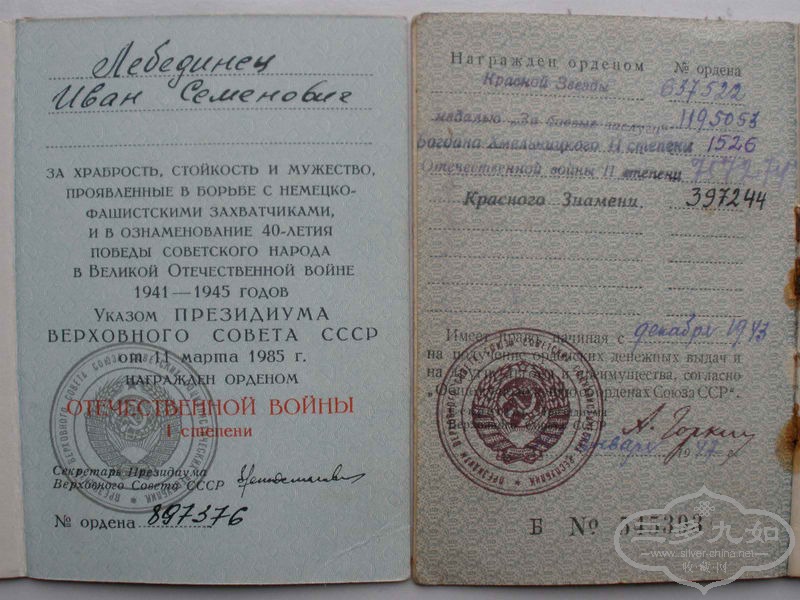 Лебединец
Иван Семенович
ЗА ХРАБРОСТЬ, СТОЙКОСТЬ И МУЖЕСТВО,
ПРОЯВЛЕННЫЕ В БОРЬБЕ С НЕМЕЦКО-
ФАШИСТСКИМИ ЗАХВАТЧИКАМИ,
И В ОЗНАМЕНОВАНИЕ 40-ЛЕТИЯ
ПОБЕДЫ СОВЕТСКОГО НАРОДА
В ВЕЛИКОЙ ОТЕЧЕСТВЕННОЙ ВОЙНЕ
1941—1945 ГОДОВ
УКАЗОМ ПРЕЗИДИУМА
ВЕРХОВНОГО СОВЕТА СССР
от 11 марта 1985 г.
НАГРАЖДЕН ОРДЕНОМ
ОТЕЧЕСТВЕННОЙ ВОЙНЫ
I степени
Секретарь Президиума
Верховного Совета СССР
№ ордена 897376
Награжден орденом № ордена
Красной Звезды 637522
медалью „За боевые заслуги" 1195053
Богдана Хмельницкого II степени 1526
Отечественной войны II степени
Красного Знамени 397244
Имеет право, начиная с декабря 1943
на получение орденских денежных выдач и
на другие льготы и преимущества, согласно
„Общего положения об орденах Союза ССР".
Президиума
Верховного Совета СССР
А. Горкин
января 1947
Б № 545393
三多九如
www.silver-china.net
收藏网